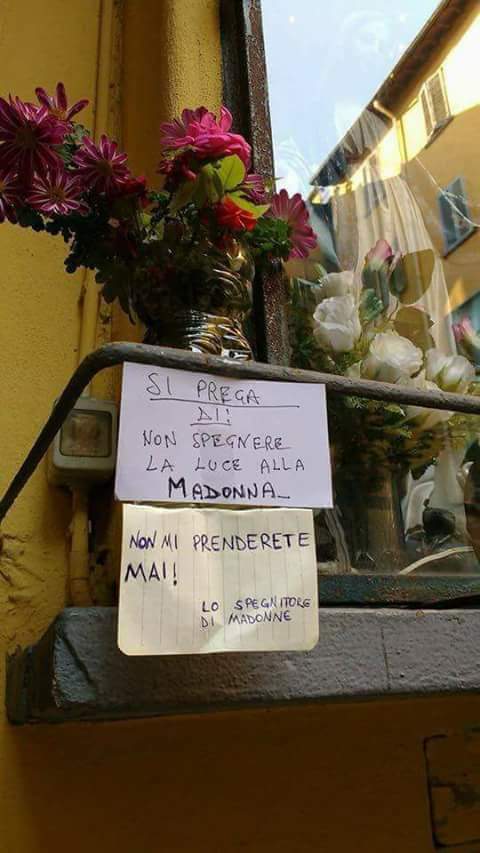 SI PREGA
DI!
NON SPEGNERE
LA LUCE ALLA
MADONNA
NON MI PRENDERETE
MAI!
LO SPEGNITORE
DI MADONNE